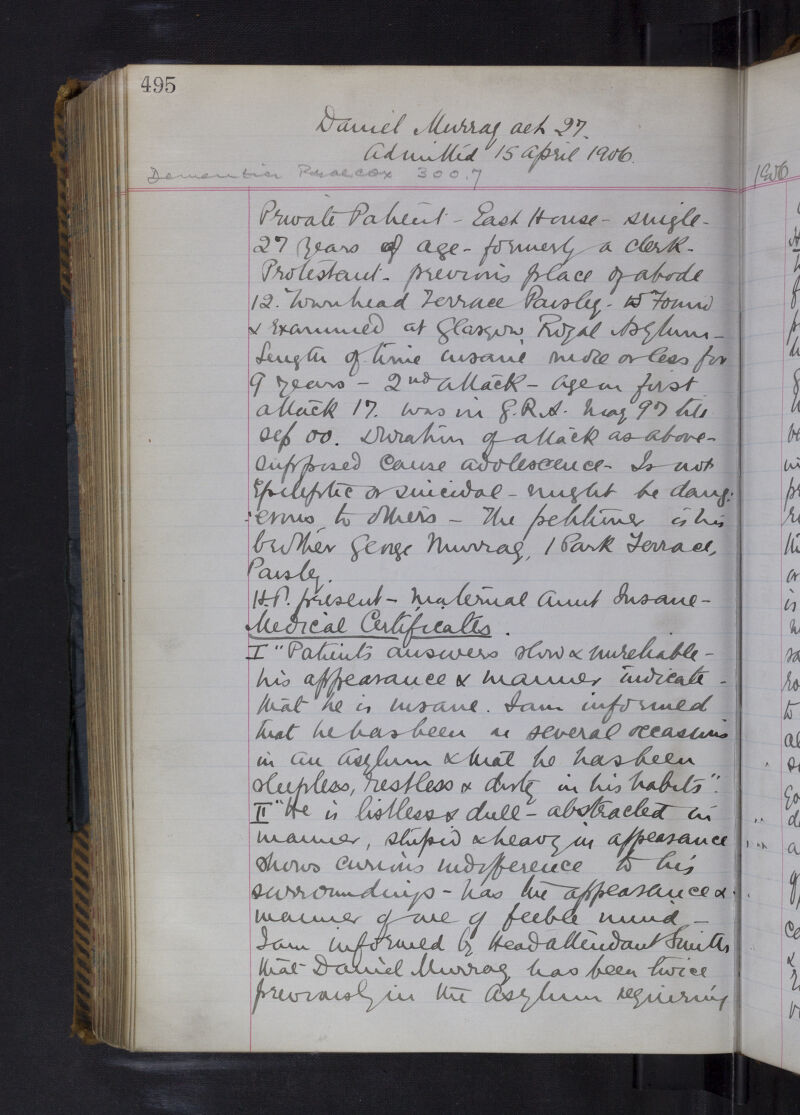 495
Daniel Murray aet 27.
Admitted 15 April 1906.
Dementia Praecox 300.7
1906
Private Patient - East House - single -
27 years of age - formerly a clerk -
Protestant - previous place of abode
12. Townhead Terrace Paisley - Found
& Examined at Glasgow Royal Asylum -
Length of time insane more or less for
9 years - 2nd attack - age on first
attack 17. was in G.R.A. May 97 till
Sep 00. Duration of attack as above -
supposed cause adolescence - Is not
Epileptic or suicidal - might be dang:
:erous to others - The petitioner is his
brother George Murray, 1 Park Terrace,
Paisley.
H.P. present - Maternal Aunt Insane -
Medical Certificates.
I "Patients answers slow & unreliable -
his appearance & manner indicate -
that he is insane. I am informed
that he has been on several occasions
in an Asylum & that he has been
sleepless, restless & dirty in his habits".
II "He is listless & dull - abstracted in
manner, stupid & heavy in appearance
shows curious indifference to his
surroundings - has the appearance &
manner of one of feeble mind -
I am informed by Head attendant Smith
that Daniel Murray has been twice
previously in the Asylum requiring